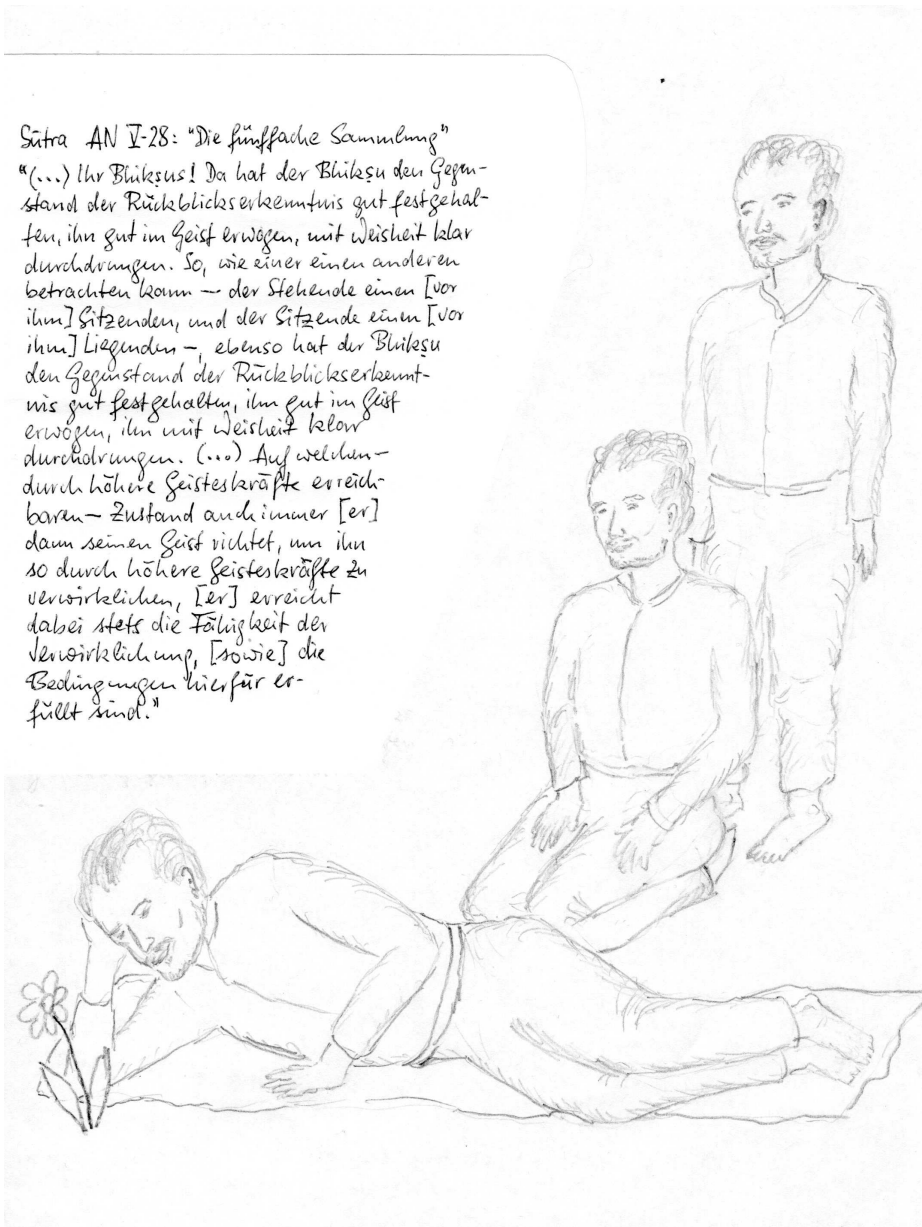 Sūtra AN V-28: "Die fünffache Sammlung"
"(...) Ihr Bhikṣus! Da hat der Bhikṣu den Gegen-
stand der Rückblickserkenntnis gut festgehal-
ten, ihn gut im Geist erwogen, mit Weisheit klar
durchdrungen. So, wie einer einen anderen
betrachten kann – der Stehende einen [vor
ihm] Sitzenden, und der Sitzende einen [vor
ihm] Liegenden –, ebenso hat der Bhikṣu
den Gegenstand der Rückblickserkennt-
nis gut festgehalten, ihn gut im Geist
erwogen, ihn mit Weisheit klar
durchdrungen. (...) Auf welchen –
durch höhere Geisteskräfte erreich-
baren – Zustand auch immer [er]
dann seinen Geist richtet, um ihn
so durch höhere Geisteskräfte zu
verwirklichen, [er] erreicht
dabei stets die Fähigkeit der
Verwirklichung, [sowie] die
Bedingungen hierfür er-
füllt sind."